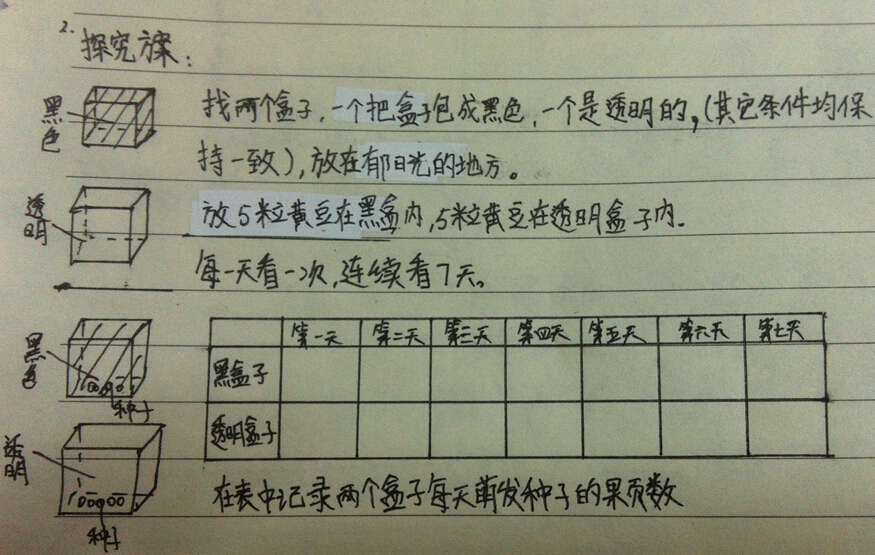 2.
探究方案:
黑色
找两个盒子,一个把盒子包成黑色,一个是透明的,(其它条件均保
持一致),放在有日光的地方。
透明
放5粒黄豆在黑盒内,5粒黄豆在透明盒子内.
每一天看一次,连续看7天。
黑色
种子
第一天 第二天 第三天 第四天 第五天 第六天 第七天
黑盒子
透明盒子
透明
种子
在表中记录两个盒子每天萌发种子的果页数